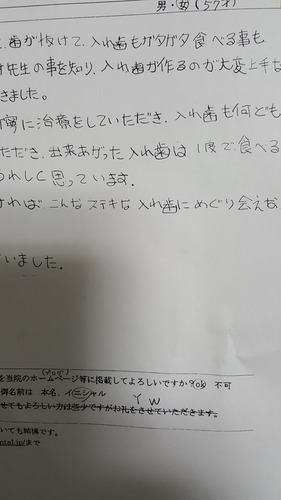 男・女(57才)
歯が抜けて、入れ歯もガタガタ食べる事も
先生の事を知り、入れ歯が作るのが大変上手な
きました。
寧に治療をしていただき、入れ歯も何ども
ただき、出来あがった入れ歯は1度で食べる
うれしく思っています。
ければ、こんなステキな入れ歯にめぐり会えな
いました。
(ブログ)
を当院のホームページ等に掲載してよろしいですか 可 不可
御名前は 本名、イニシャル
Y W
せてもよろしい方は些少ですがお礼をさせていただきます。
いても結構です。
ntal.jp/まで